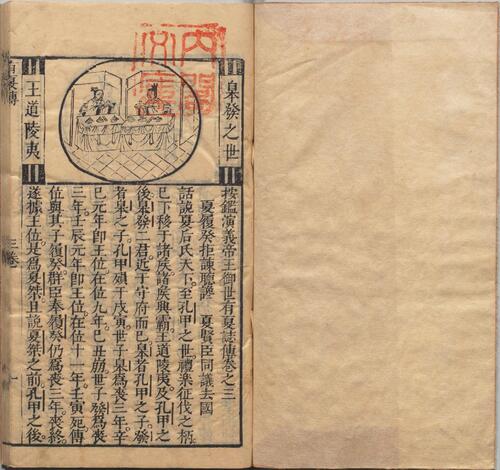 內閣文庫
臯發之世
王道陵夷
按鑑演義帝王御世有夏誌傳卷之三
夏履癸拒諫聽讒 夏賢臣同議去國
話說夏后氏天下至孔甲之世禮樂征伐之柄
已下移于諸矦諸矦興霸王道陵夷及孔甲之
後臯發二君近于守府而已臯者孔甲之子發
者臯之子孔甲殞于戊寅世子臯爲喪三年辛
巳元年卽王位在位九年己丑崩世子發爲喪
三年壬辰元年卽王位在位十一年壬寅死傳
位與其子履癸群臣奉履癸仍爲喪三年喪終
遂據王位是爲夏桀且說夏桀之前孔甲之後
有夏傳
三卷
一